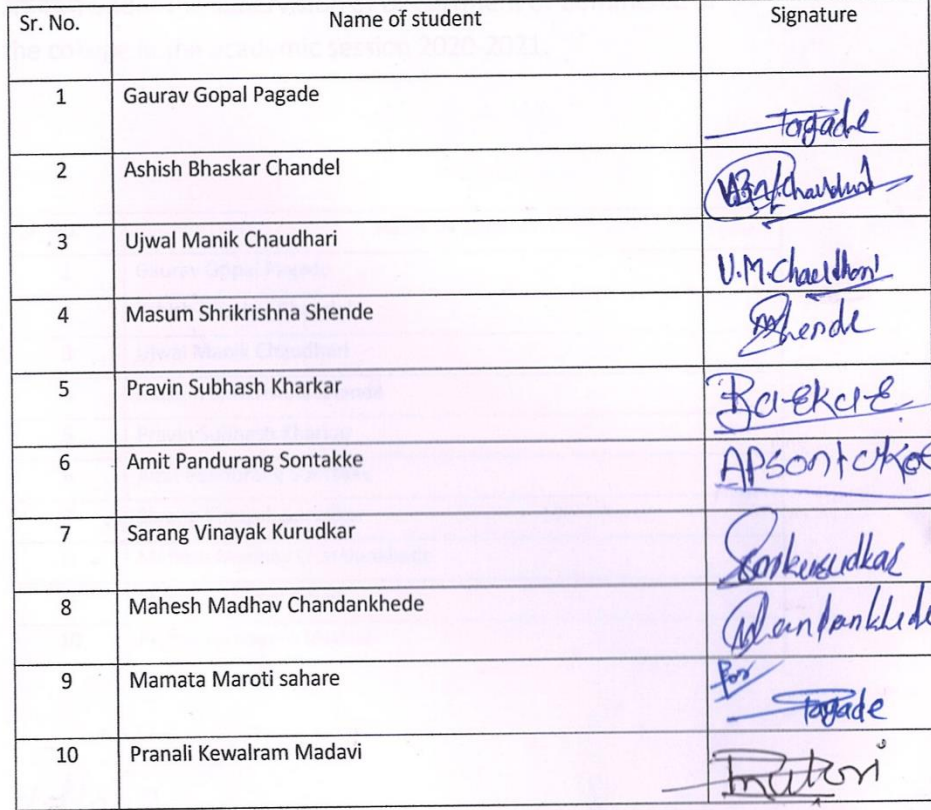 the college the academic section 2020-2021.
Sr. No. Name of student Signature
1 Gaurav Gopal Pagade Pagade
2 Ashish Bhaskar Chandel
3 Ujwal Manik Chaudhari U.M.Chaudhari
4 Masum Shrikrishna Shende Shende
5 Pravin Subhash Kharkar
6 Amit Pandurang Sontakke APSontakke
7 Sarang Vinayak Kurudkar Kurudkar
8 Mahesh Madhav Chandankhede Chandankhede
9 Mamata Maroti sahare For Pagade
10 Pranali Kewalram Madavi